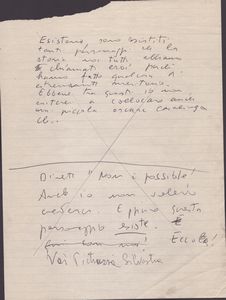 Esistono, sono esistiti
tanti personaggi che la
storia noi tutti abbiamo
chiamati eroi perché
hanno fatto qualcosa di
estremamente
Ebbene tra questi io non
a collocare anche
una piccola oscura casalinga
che..
Direte "Non è possibile!
Anch'io non volevo
crederci. Eppure questo
personaggio esiste.
Eccola!
Vai Silvestra